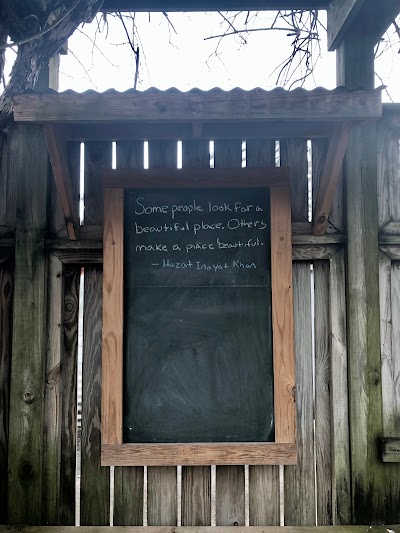 Some people look for a
beautiful place. Others
make a place beautiful.
- Hazat Inayat Khan